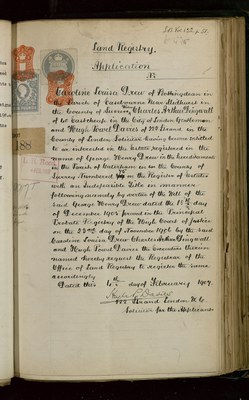 Land Registry.
Application
No
Caroline Louisa Drew of Nottingdean in
the Parish of Eastbourne Near Midhurst in
the County of Sussex, Charles Arthur
of 40 Eastcheap in the City of London Gentleman
and Hugh Powel Davies of 222 Strand in the
County of London Solicitor having become entitled
to an interest in the Estate registered in the
name of George Henry Drew in the hereditaments
in the Parish of in the County of
Surrey Numbered in the Register of Estates
with an Indefeasible Title in manner
following namely by virtue of the Will of the
said George Henry Drew dated the 18th day
of December 1902 proved in the Principal
Probate Registry of the High Court of Justice
on the 22nd day of November 1906 by the said
Caroline Louisa Drew Charles Arthur
and Hugh Powel Davies the executors therein
named hereby request the Registrar of the
Office of Land Registry to register the same
accordingly
Dated this 4th day of February 1907.
Hugh P Davies
222 Strand London W.C.
Solicitor for the Applicants
188